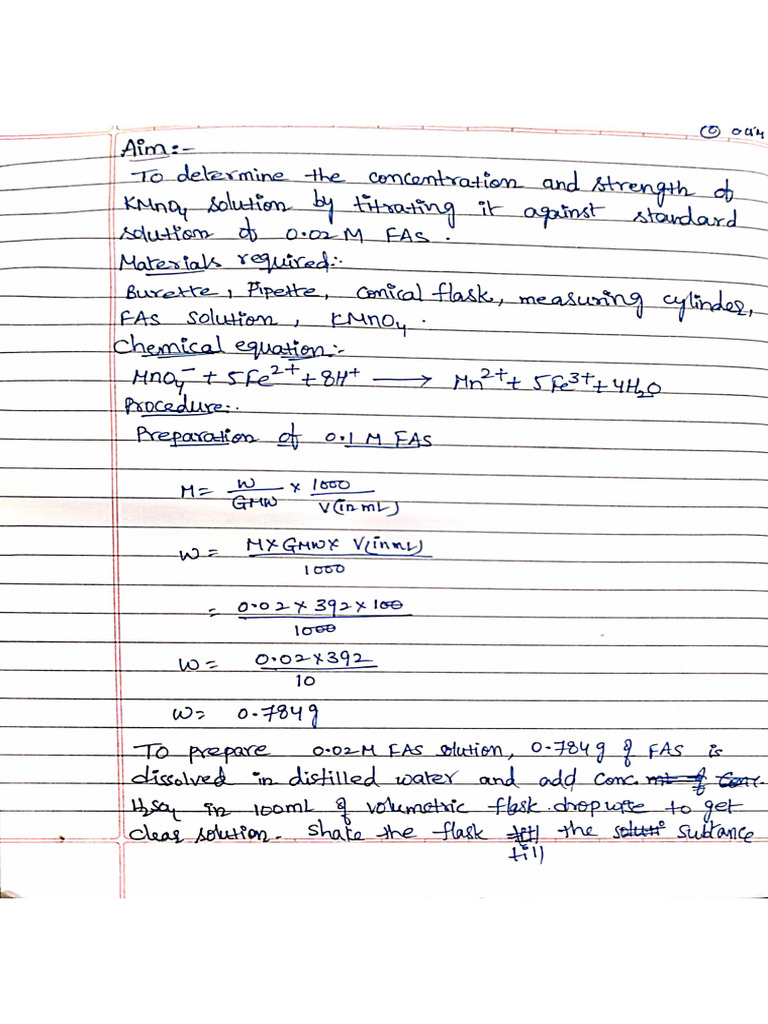 Aim:-
To determine the concentration and strength of
KMnO4 solution by titrating it against standard
solution of 0.02 M FAS.
Materials required:-
Burette, Pipette, conical flask, measuring cylinder,
FAS solution, KMnO4.
Chemical equation:-
MnO4⁻ + 5Fe²⁺ + 8H⁺ ⟶ Mn²⁺ + 5Fe³⁺ + 4H2O
Procedure:-
Preparation of 0.1 M FAS
M = W/GMW × 1000/V(in mL)
W = M × GMW × V(in mL)/1000
= 0.02 × 392 × 100/1000
W = 0.02 × 392/10
W = 0.784g
To prepare 0.02M FAS solution, 0.784g of FAS is
dissolved in distilled water and add conc.
H2SO4 in 100mL of volumetric flask dropwise to get
clear solution. Shake the flask till the subtance